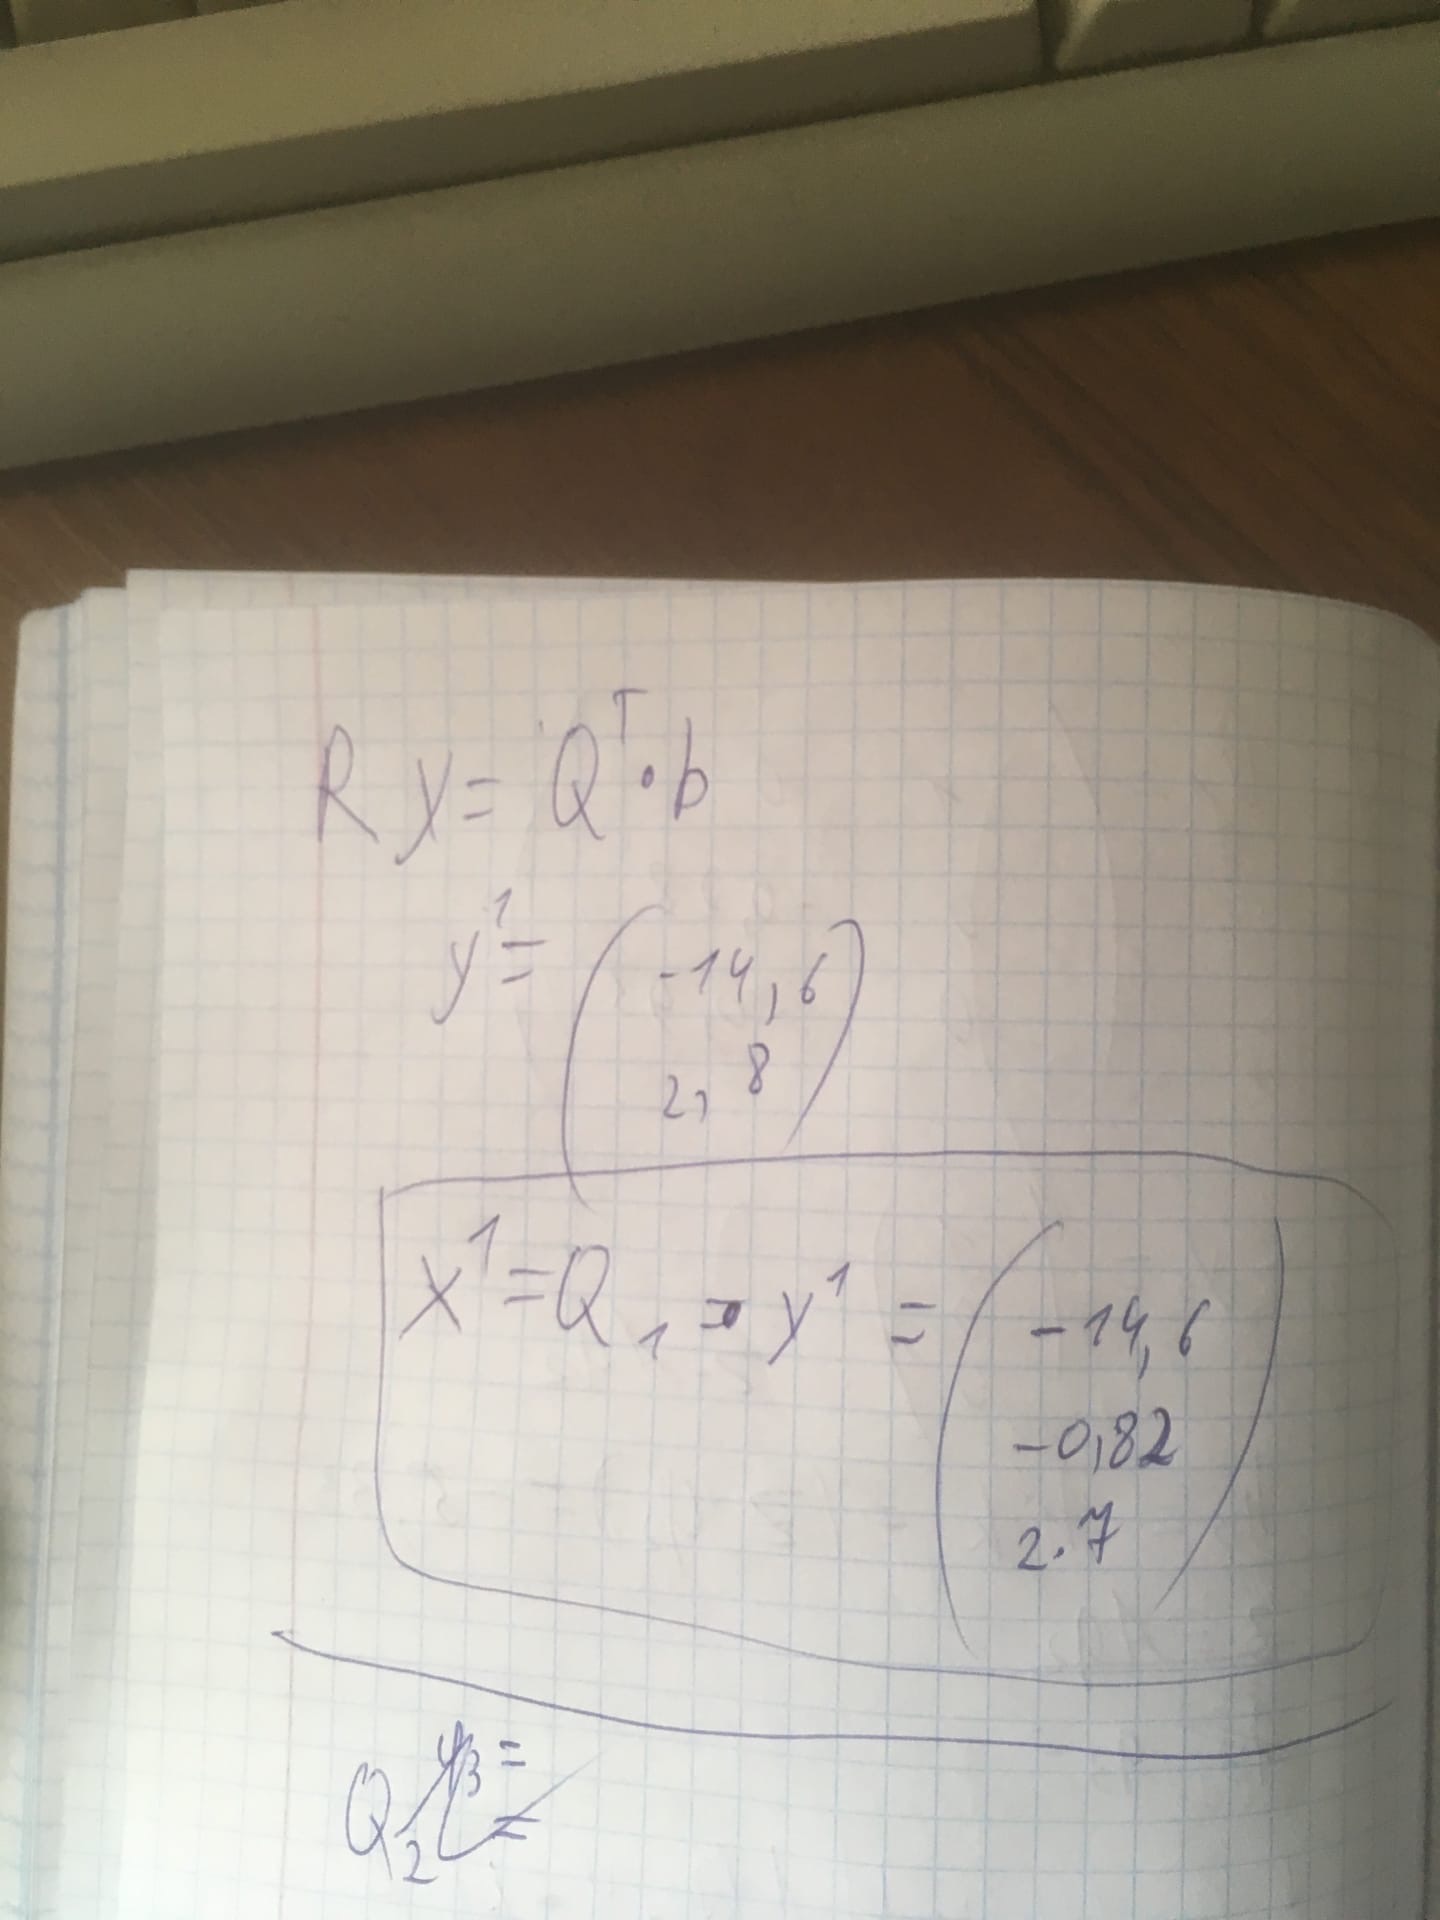 R y = Qᵀ · b
y¹ = ( -14, 6
2, 8 )
x¹ = Q₁ · y¹ = ( -14, 6
-0,82
2.7 )
Q₂ =